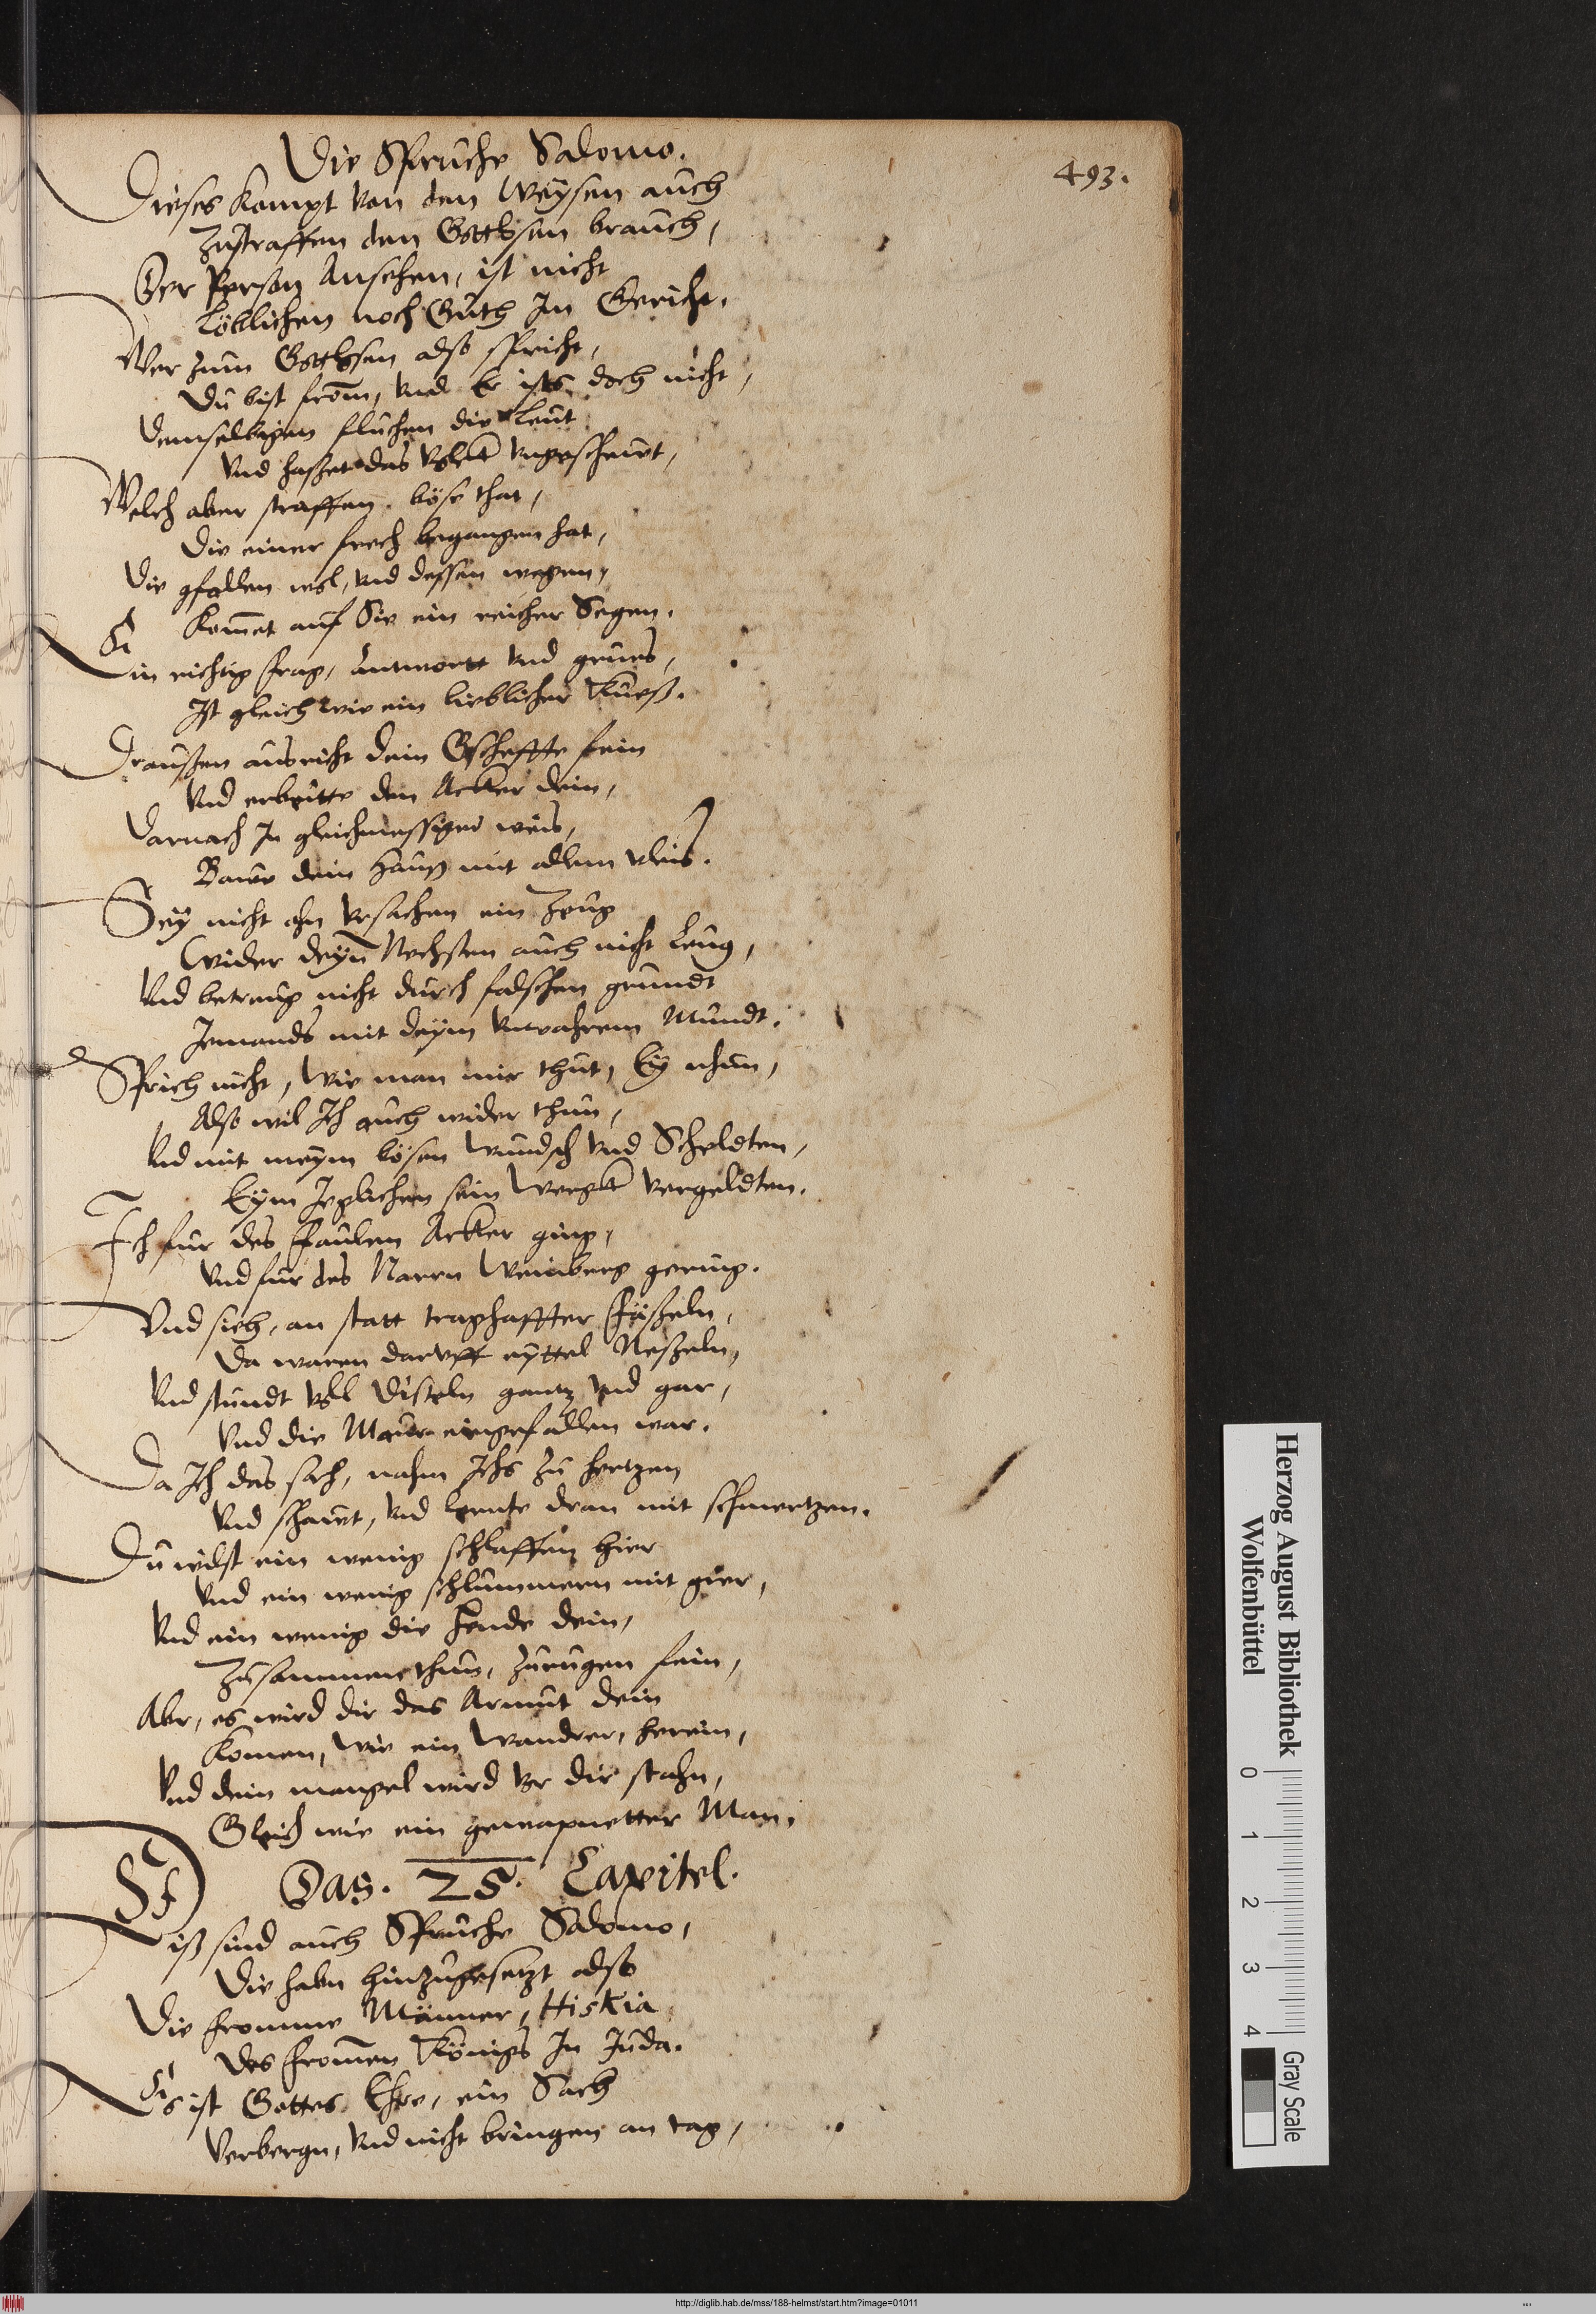 Die Spruche Salomo.
493.
Dieses kompt von den Weysen auch
Zustraffen den Gottlosen brauch,
Der Person Ansehen, ist nicht
Löblichen noch Guth In Gericht.
Wer zum Gottlosen also spricht,
Du bist from̄, vnd Er ists doch nicht,
Demselbigen fluchen die Leut
Vnd haßet das Volck vngescheut,
Welch aber straffen böse that,
Die einer frech begangen hat,
Die gfallen wol, vnd dessen wegen,
Kom̄et auf Sie ein reicher Segen.
Ein richtig frag, Antwortt vnd grues,
Ist gleich wie ein lieblicher Kueß.
Draußen ausricht dein Gescheffte fein
Vnd erbeitte den Acker dein,
Darnach In gleichmessiger weis,
Bawe dein Hauß mit allem vleis.
Sey nicht ohn Vrsachen ein Zeug
Wider deyn̄ Nechsten auch nicht Leug,
Vnd betreug nicht durch falschen grundt
Jemands mit deym vnwahrem Mundt.
Sprich nicht, Wie man mir thut, Ey nhun,
Also wil Ich auch wider thun,
Vnd mit meym bösen Wundsch vnd Scheldten,
Eym Jeglichen sein Werck vergeldten.
Ich fur des Faulen Acker ging,
Vnd fur des Narrn Weinberg gering.
Vnd sieh, an statt traghaffter Fäßeln,
Da waren darvff eyttel Neßeln,
Vnd stundt voll Disteln gantz vnd gar,
Vnd die Maur eingefallen war.
Da Ich das sach, nahm Ichs zu hertzen
Vnd schawt, vnd lernte dran mit schmertzen.
Du wilst ein wenig schlaffen hier
Vnd ein wenig schlummern mit gier,
Vnd ein wenig die Hende dein,
Zusammenthun, zurugen fein,
Abr, es wird dir das Armut dein
Komen, wie ein Wandrer, herein,
Vnd dein mangel wird vor dir stahn,
Gleich wie ein gewapnetter Man.
Das. 25. Capitel.
Diß sind auch Spruche Salomo,
Die habn hinzugesetzt also
Die fromme Männer, Hiskia
Des from̄en Königs In Juda.
Es ist Gottes Ehre, ein Sach
Verbergn, vnd nicht bringen an tag,
Herzog August Bibliothek
Wolfenbüttel
0 1 2 3 4
Gray Scale
http://diglib.hab.de/mss/188-helmst/start.htm?image=01011